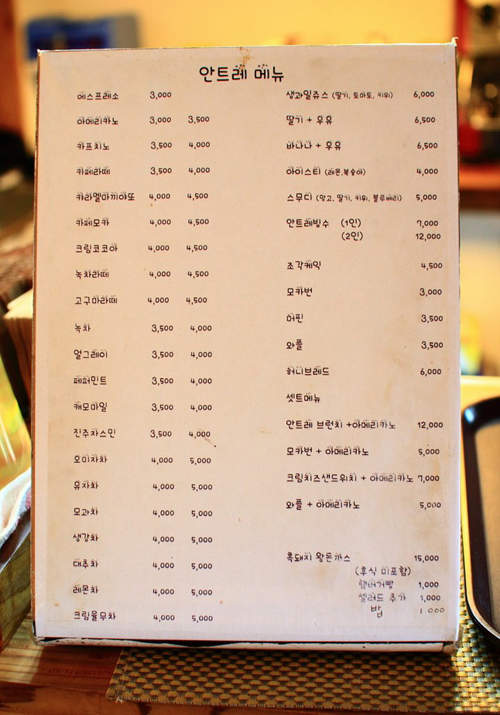 안트레 메뉴
에스프레소 3,000
아메리카노 3,000 3,500
카프치노 3,500 4,000
카페라떼 3,500 4,000
카라멜마끼아또 4,000 4,500
카페모카 4,000 4,500
크림코코아 4,000 4,500
녹차라떼 4,000 4,500
고구마라떼 4,000 4,500
녹차 3,500 4,000
얼그레이 3,500 4,000
페퍼민트 3,500 4,000
캐모마일 3,500 4,000
진주자스민 3,500 4,000
오미자차 4,000 5,000
유자차 4,000 5,000
모과차 4,000 5,000
생강차 4,000 5,000
대추차 4,000 5,000
레몬차 4,000 5,000
크림율무차 4,000 5,000
생과일쥬스 (딸기, 토마토, 키위) 6,000
딸기 + 우유 6,500
바나나 + 우유 6,500
아이스티 (레몬,복숭아) 4,000
스무디 (망고, 딸기, 키위, 블루베리) 5,000
안트레빙수 (1인) 7,000
(2인) 12,000
조각케익 4,500
모카번 3,000
머핀 3,500
와플 3,500
허니브레드 6,000
셋트메뉴
안트레 브런치 +아메리카노 12,000
모카번 + 아메리카노 5,000
크림치즈샌드위치 + 아메리카노 7,000
와플 + 아메리카노 5,000
흑돼지 왕돈까스 15,000
(후식 미포함)
햄버거빵 1,000
샐러드 추가 1,000
밥 1,000